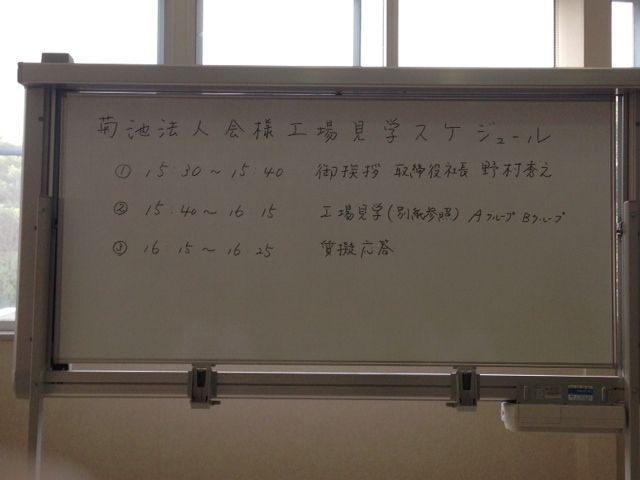 菊池法人会様工場見学スケジュール
① 15:30〜15:40 御挨拶 取締役社長 野村秀之
② 15:40〜16:15 工場見学(別紙参照) Aグループ Bグループ
③ 16:15〜16:25 質擬応答